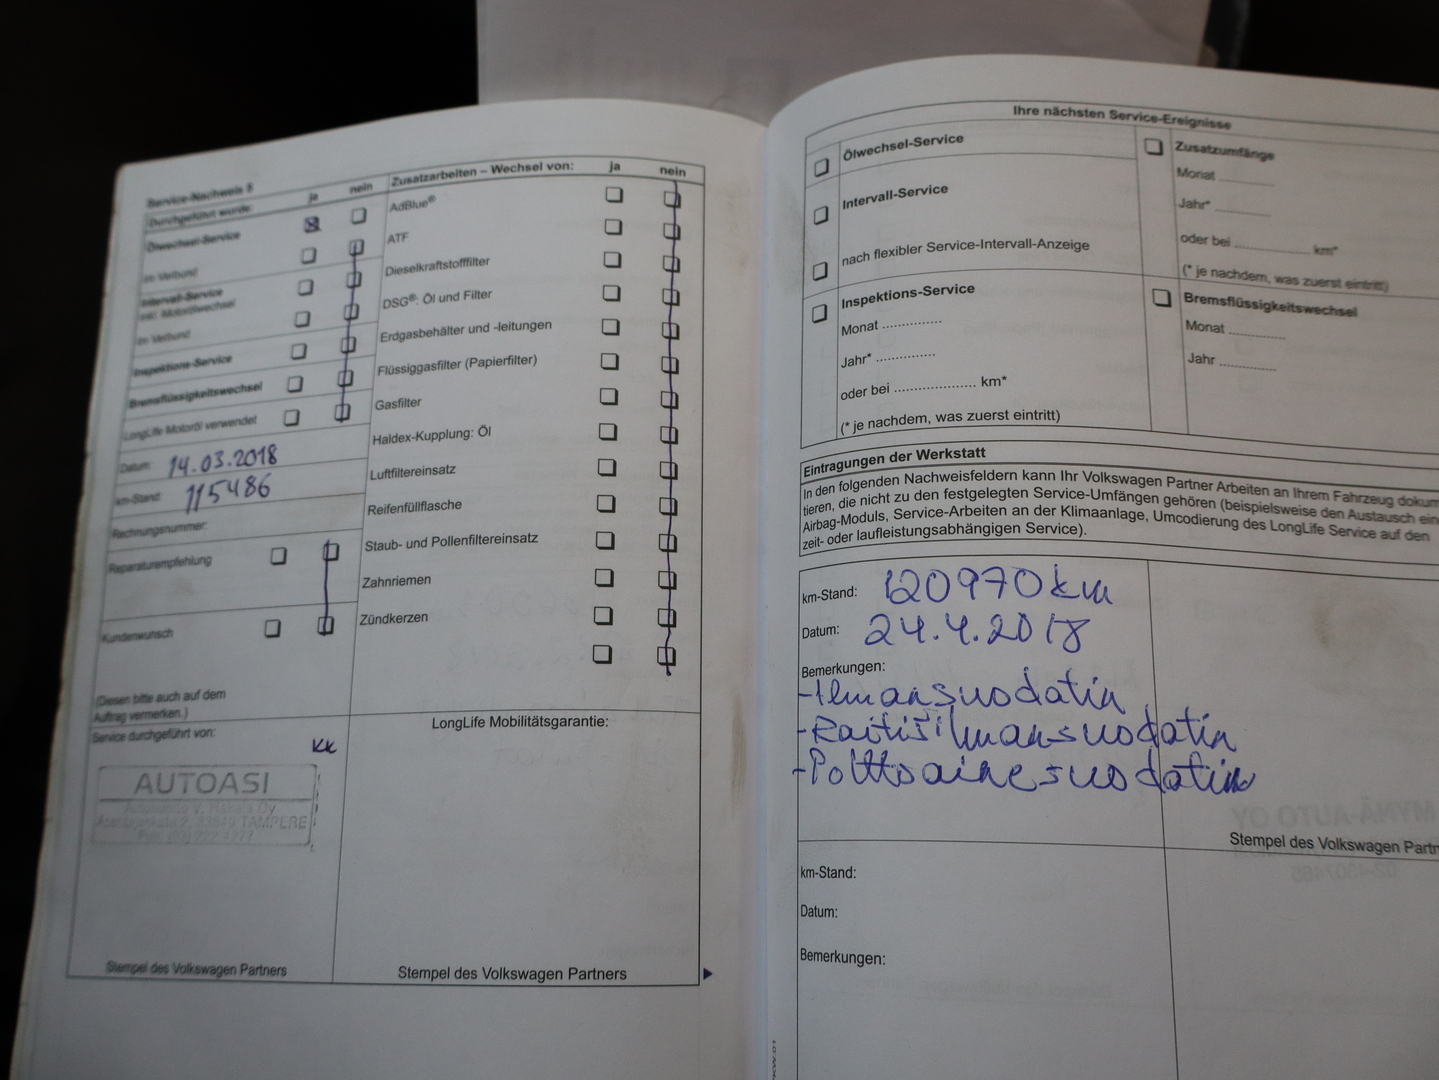 Service-Nachweis 5
Durchgeführt wurde: ja nein
Ölwechsel-Service
im Verbund
Intervall-Service
inkl. Motorölwechsel
im Verbund
Inspektions-Service
Bremsflüssigkeitswechsel
LongLife Motoröl verwendet
Datum: 14.03.2018
km-Stand: 115486
Rechnungsnummer:
Reparaturempfehlung
Kundenwunsch
(Diesen bitte auch auf dem
Auftrag vermerken.)
Service durchgeführt von:
KK
AUTOASI
TAMPERE
Stempel des Volkswagen Partners
Zusatzarbeiten – Wechsel von: ja nein
AdBlue®
ATF
Dieselkraftstofffilter
DSG®: Öl und Filter
Erdgasbehälter und -leitungen
Flüssiggasfilter (Papierfilter)
Gasfilter
Haldex-Kupplung: Öl
Luftfiltereinsatz
Reifenfüllflasche
Staub- und Pollenfiltereinsatz
Zahnriemen
Zündkerzen
LongLife Mobilitätsgarantie:
Stempel des Volkswagen Partners
Ihre nächsten Service-Ereignisse
Ölwechsel-Service
Intervall-Service
nach flexibler Service-Intervall-Anzeige
Inspektions-Service
Monat ...............
Jahr* ...............
oder bei .................... km*
(* je nachdem, was zuerst eintritt)
Zusatzumfänge
Monat ..............
Jahr* ..............
oder bei ................... km*
(* je nachdem, was zuerst eintritt)
Bremsflüssigkeitswechsel
Monat ..............
Jahr ..............
Eintragungen der Werkstatt
In den folgenden Nachweisfeldern kann Ihr Volkswagen Partner Arbeiten an Ihrem Fahrzeug dokum
tieren, die nicht zu den festgelegten Service-Umfängen gehören (beispielsweise den Austausch ein
Airbag-Moduls, Service-Arbeiten an der Klimaanlage, Umcodierung des LongLife Service auf den
zeit- oder laufleistungsabhängigen Service).
km-Stand: 120970km
Datum: 24.4.2018
Bemerkungen:
-Ilmansuodatin
-Raitisilmansuodatin
-Polttoainesuodatin
Stempel des Volkswagen Partn
km-Stand:
Datum:
Bemerkungen: